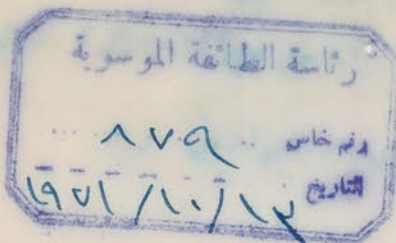 رئاسة الطائفة الموسوية
رقم خاص .. ٨٧٩ ...
التاريخ ١٣/١٠/١٩٧١